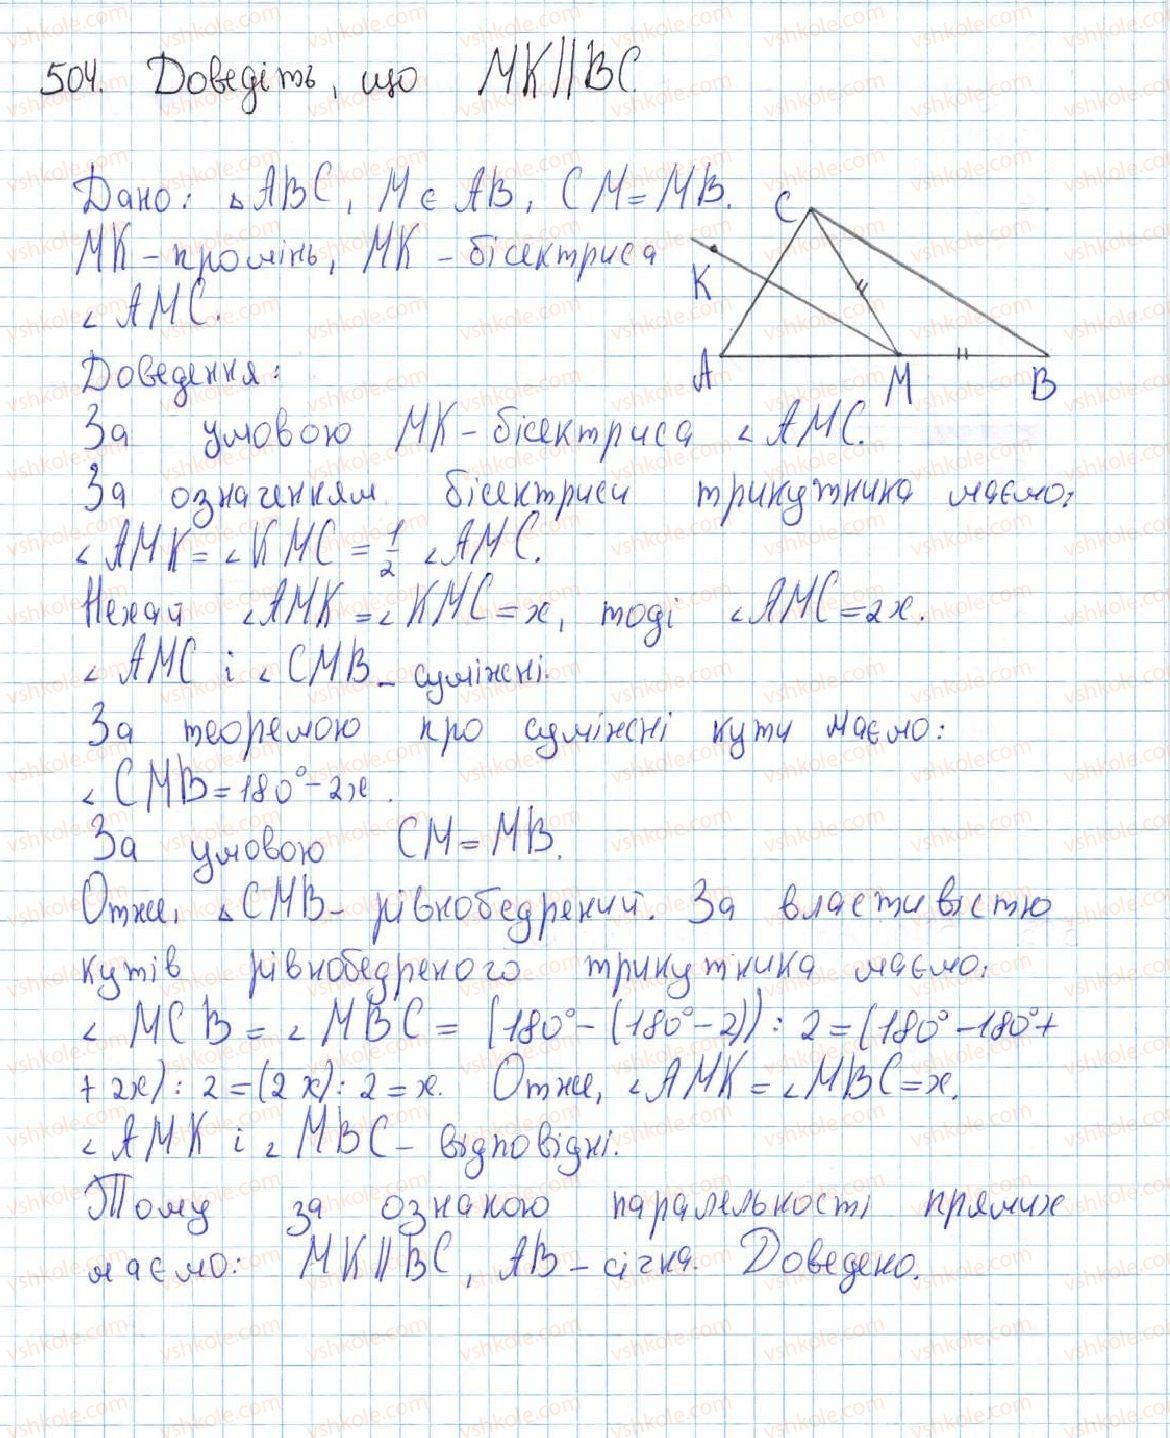 504. Доведіть, що MK||BC.
Дано: △ABC, M є AB, CM=MB.
MK – промінь, MK – бісектриса
∠AMC.
C
K
A M B
Доведення:
За умовою MK – бісектриса ∠AMC.
За означенням бісектриси трикутника маємо:
∠AMK = ∠KMC = 1/2 ∠AMC.
Нехай ∠AMK = ∠KMC = x, тоді ∠AMC = 2x.
∠AMC і ∠CMB – суміжні.
За теоремою про суміжні кути маємо:
∠CMB = 180° – 2x.
За умовою CM = MB.
Отже, △CMB – рівнобедрений. За властивістю
кутів рівнобедреного трикутника маємо:
∠MCB = ∠MBC = (180° – (180° – 2)) : 2 = (180° – 180° +
+ 2x) : 2 = (2x) : 2 = x. Отже, ∠AMK = ∠MBC = x.
∠AMK і ∠MBC – відповідні.
Тому за ознакою паралельності прямих
маємо: MK||BC, AB – січна. Доведено.